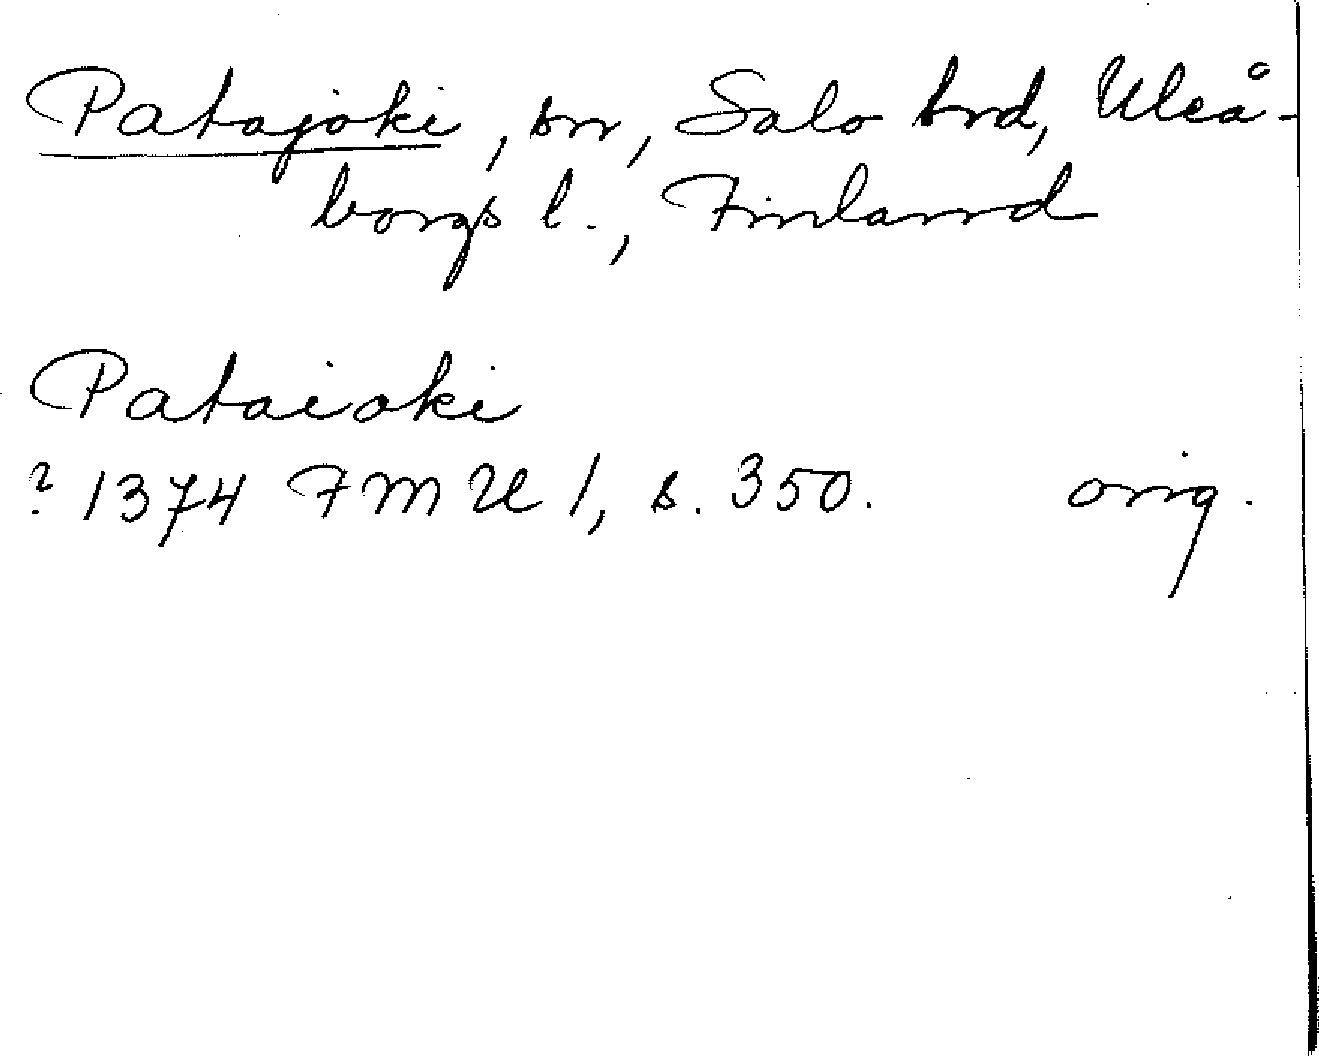 Patajoki, sn, Salo tnd, Uleå-
borgs l., Finland
Pataioki
? 1374 FMU 1, s. 350. orig.